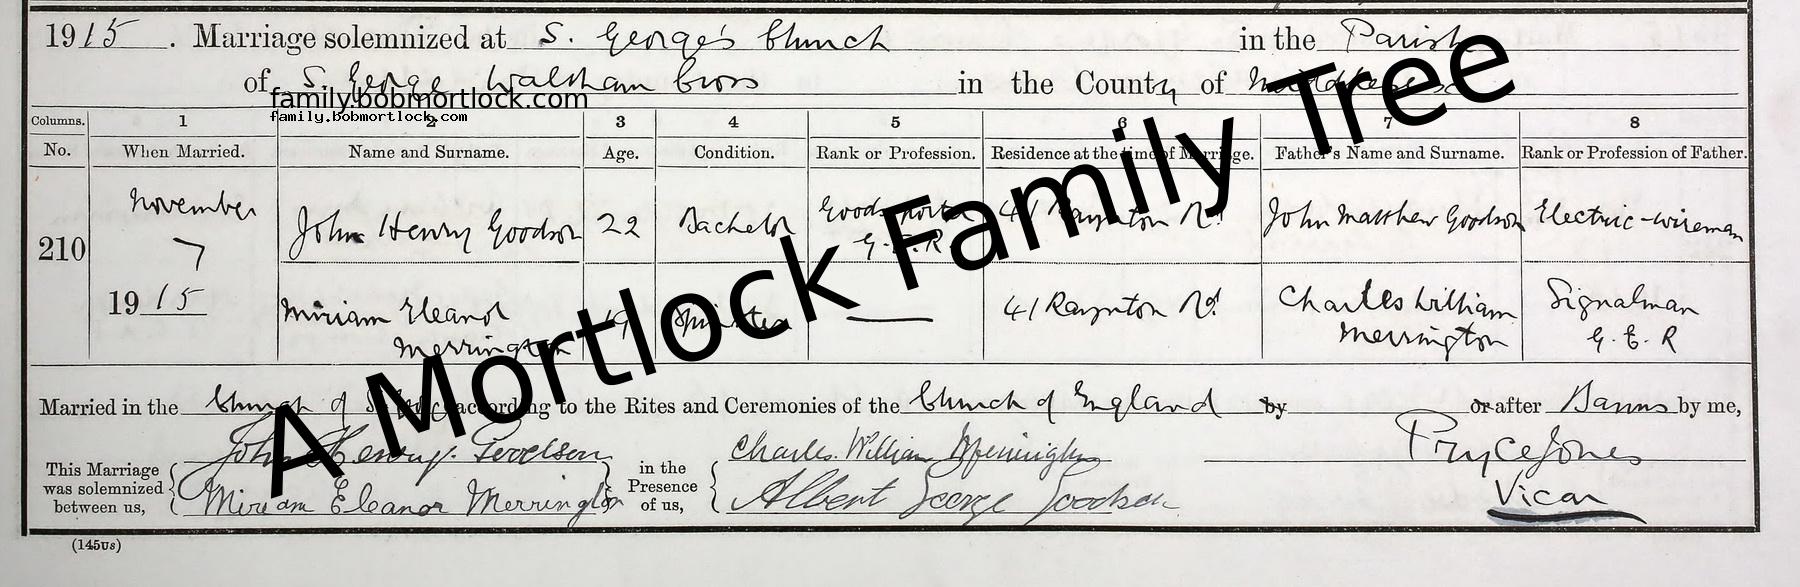 1915. Marriage solemnized at S. George's Church in the Parish
of S. George Waltham Cross in the County of Middlesex
family.bobmortlock.com
family.bobmortlock.com
Columns. 1 2 3 4 5 6 7 8
No. When Married. Name and Surname. Age. Condition. Rank or Profession. Residence at the time of Marriage. Father's Name and Surname. Rank or Profession of Father.
210 November 7 1915
John Henry Goodson 22 Bachelor Goods porter G.E.R. 41 Raynton Rd John Matthew Goodson Electric-wireman
Miriam Eleanor Merrington 19 Spinster — 41 Raynton Rd Charles William Merrington Signalman G.E.R
Married in the Church of S. according to the Rites and Ceremonies of the Church of England by or after Banns by me,
This Marriage was solemnized between us,
John Henry Goodson
Miriam Eleanor Merrington
in the Presence of us,
Charles William Merrington
Albert George Goodson
Pryce Jones
Vicar
(145us)
A Mortlock Family Tree